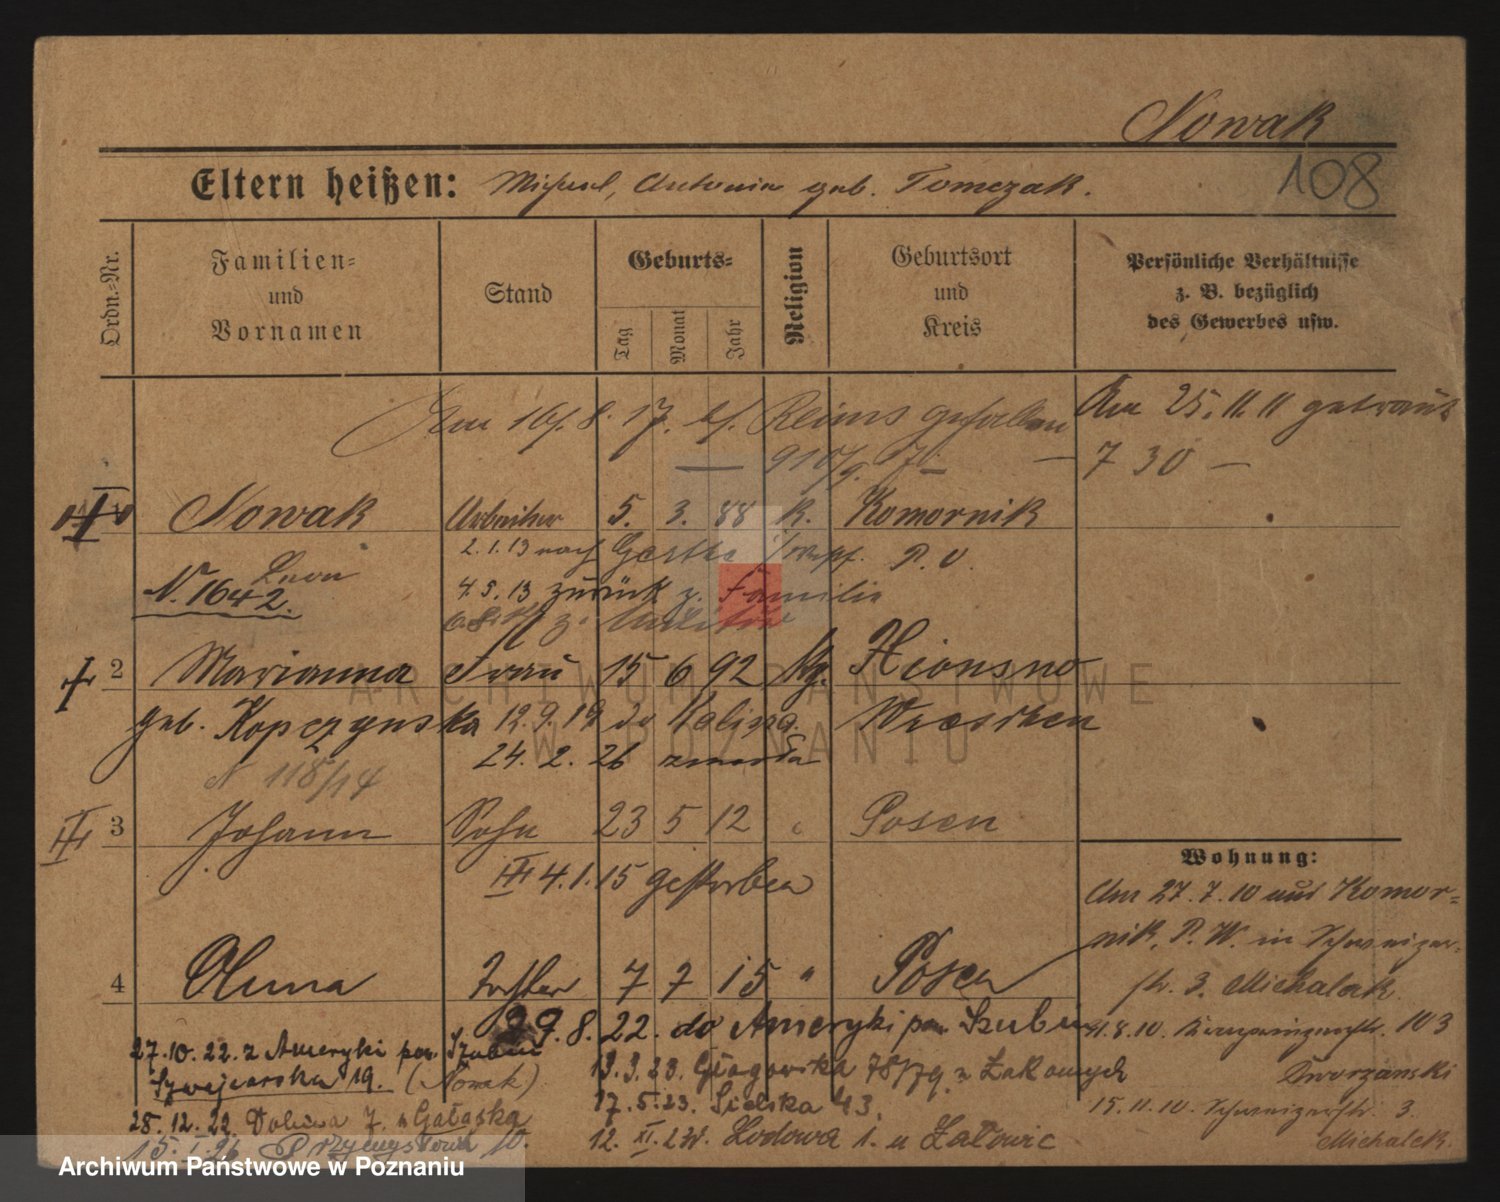 Nowak
108
Eltern heißen: Michael, Antonia geb. Tomczak.
Ordn.-Nr.
Familien-
und
Vornamen
Stand
Geburts-
Tag
Monat
Jahr
Religion
Geburtsort
und
Kreis
Persönliche Verhältnisse
z. B. bezüglich
des Gewerbes usw.
Am 16. 8. 17. bf. Reims gefallen
Am 25. 11. 11 getraut
7 30 —
Nowak Arbeiter 5. 3. 88 k. Komornik
2. 1. 13 nach P. O.
N. 1642.
4. 5. 13 zurück z. Familie
2 Marianna Frau 15 6 92 kg.
geb. Kopczynska 12. 9. 19 do Kalisza. Wreschen
24. 2. 26 zmarła
N 118/14
3 Johann Sohn 23 5 12 " Posen
III 4. 1. 15 gestorben
Wohnung:
Am 27. 7. 10 aus Komor-
nik, P. W. in Schweizer-
str. 3. Michalak
4 Anna Tochter 7 7 15 " Posen
29. 8. 22. do Ameryki pow. Szubin
11. 8. 10. 103
27. 10. 22. z Ameryki pow. Szubin
Szwajcarska 19. (Nowak)
13. 3. 23. Głogowska 78/79
Dworzanski
28. 12. 22. Dolina 7. u Gałąska
17. 5. 23. Sielska 43.
15. 11. 10. Schweizerstr. 3.
15. I. 26 Przemysłowa 10.
12. XI. 23. Łodowa 1. u
Michalak.
ARCHIWUM PAŃSTWOWE
W POZNANIU
Archiwum Państwowe w Poznaniu